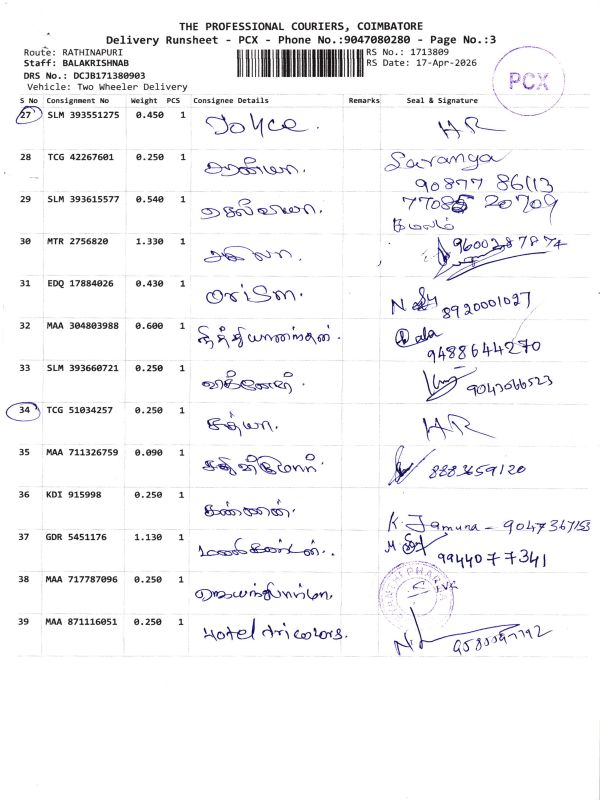 THE PROFESSIONAL COURIERS, COIMBATORE
Delivery Runsheet - PCX - Phone No.:9047080280 - Page No.:3
Route: RATHINAPURI RS No.: 1713809
Staff: BALAKRISHNAB RS Date: 17-Apr-2026
DRS No.: DCJB171380903
Vehicle: Two Wheeler Delivery
PCX
S No Consignment No Weight PCS Consignee Details Remarks Seal & Signature
27 SLM 393551275 0.450 1 Joyce. HR
28 TCG 42267601 0.250 1 சரண்யா. Saranya
90877 86113
29 SLM 393615577 0.540 1 செல்வியா. 77085 20709
கமலம்
30 MTR 2756820 1.330 1 அகிலா. 9600287874
31 EDQ 17884026 0.430 1 8920001027
32 MAA 304803988 0.600 1 நித்தியானந்தன். Bala
9488644270
33 SLM 393660721 0.250 1 விக்னேஷ். 9043066523
34 TCG 51034257 0.250 1 சத்யா. HR
35 MAA 711326759 0.090 1 8883659120
36 KDI 915998 0.250 1 கண்ணன்.
K. Jamuna - 9047367153
37 GDR 5451176 1.130 1 மணிகண்டன்.. 9944077341
38 MAA 717787096 0.250 1
39 MAA 871116051 0.250 1 Hotel tricolors.